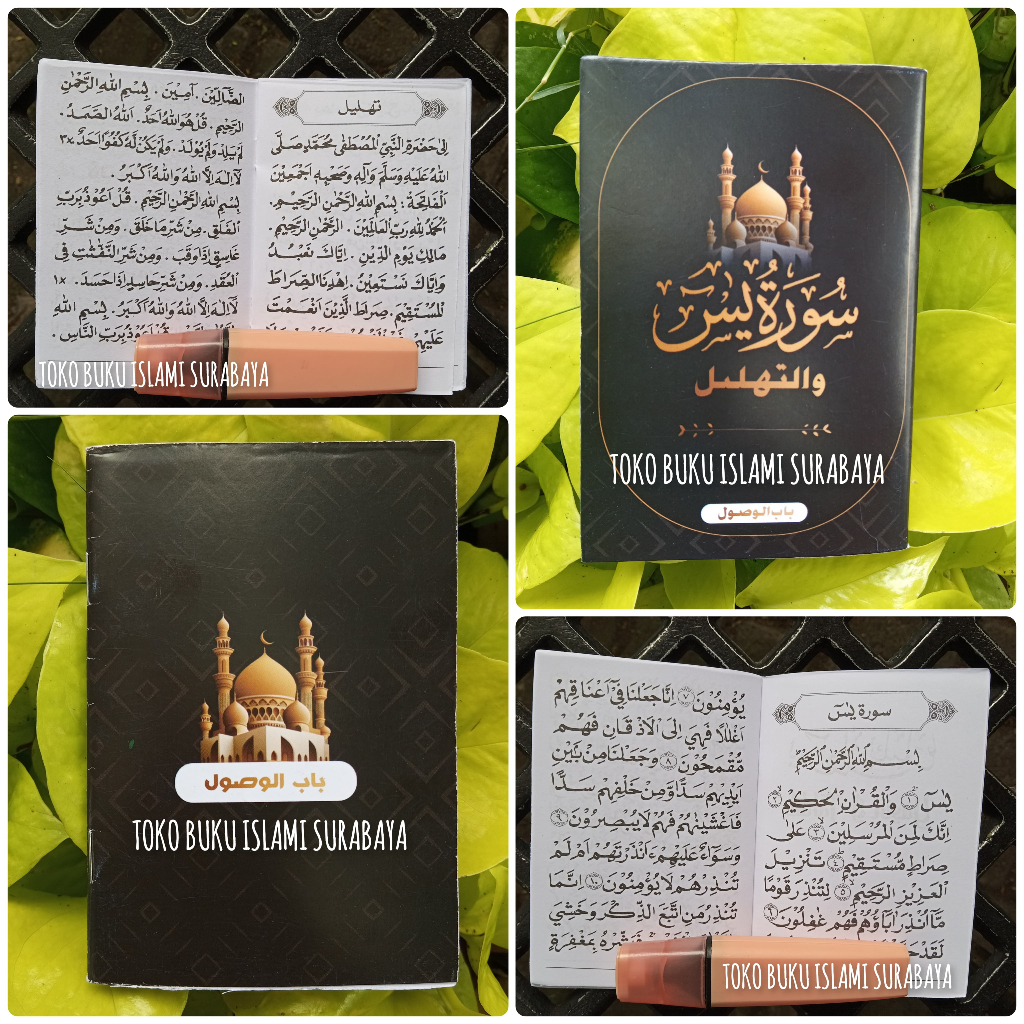 تهليل
اِلىٰ حَضْرَةِ النَّبِيِّ الْمُصْطَفٰى مُحَمَّدٍ صَلَّى
اللهُ عَلَيْهِ وَسَلَّمَ وَآلِهِ وَصَحْبِهِ اَجْمَعِيْنَ
اَلْفَاتِحَةُ : بِسْمِ اللهِ الرَّحْمٰنِ الرَّحِيْمِ.
اَلْحَمْدُ لِلّٰهِ رَبِّ الْعَالَمِيْنَ. الرَّحْمٰنِ الرَّحِيْمِ.
مَالِكِ يَوْمِ الدِّيْنِ. اِيَّاكَ نَعْبُدُ
وَاِيَّاكَ نَسْتَعِيْنُ. اِهْدِنَا الصِّرَاطَ
الْمُسْتَقِيْمَ. صِرَاطَ الَّذِيْنَ اَنْعَمْتَ
عَلَيْهِمْ
الضَّالِّيْنَ. آمِيْنَ. بِسْمِ اللهِ الرَّحْمٰنِ
الرَّحِيْمِ. قُلْ هُوَ اللهُ اَحَدٌ. اَللهُ الصَّمَدُ.
لَمْ يَلِدْ وَلَمْ يُوْلَدْ. وَلَمْ يَكُنْ لَهُ كُفُوًا اَحَدٌ ٣×
لَآ اِلٰهَ اِلَّا اللهُ وَاللهُ اَكْبَرُ.
بِسْمِ اللهِ الرَّحْمٰنِ الرَّحِيْمِ. قُلْ اَعُوْذُ بِرَبِّ
الْفَلَقِ. مِنْ شَرِّ مَا خَلَقَ. وَمِنْ شَرِّ
غَاسِقٍ اِذَا وَقَبَ. وَمِنْ شَرِّ النَّفّٰثٰتِ فِى
الْعُقَدِ. وَمِنْ شَرِّ حَاسِدٍ اِذَا حَسَدَ. ١×
لَآ اِلٰهَ اِلَّا اللهُ وَاللهُ اَكْبَرُ. بِسْمِ اللهِ
بِرَبِّ النَّاسِ.
TOKO BUKU ISLAMI SURABAYA
سُوْرَةُ يٰسٓ
والتهليل
TOKO BUKU ISLAMI SURABAYA
باب الوصول
باب الوصول
TOKO BUKU ISLAMI SURABAYA
سورة يٰسٓ
بِسْمِ اللهِ الرَّحْمٰنِ الرَّحِيْمِ
يٰسٓ ۝١ وَالْقُرْاٰنِ الْحَكِيْمِ ۝٢
اِنَّكَ لَمِنَ الْمُرْسَلِيْنَ ۝٣ عَلٰى
صِرَاطٍ مُّسْتَقِيْمٍ ۝٤ تَنْزِيْلَ
الْعَزِيْزِ الرَّحِيْمِ ۝٥ لِتُنْذِرَ قَوْمًا
مَّآ اُنْذِرَ اٰبَاؤُهُمْ فَهُمْ غٰفِلُوْنَ ۝٦
لَقَدْ
يُؤْمِنُوْنَ ۝٧ اِنَّا جَعَلْنَا فِيْٓ اَعْنَاقِهِمْ
اَغْلٰلًا فَهِيَ اِلَى الْاَذْقَانِ فَهُمْ
مُّقْمَحُوْنَ ۝٨ وَجَعَلْنَا مِنْۢ بَيْنِ
اَيْدِيْهِمْ سَدًّا وَّمِنْ خَلْفِهِمْ سَدًّا
فَاَغْشَيْنٰهُمْ فَهُمْ لَا يُبْصِرُوْنَ ۝٩
وَسَوَآءٌ عَلَيْهِمْ ءَاَنْذَرْتَهُمْ اَمْ لَمْ
تُنْذِرْهُمْ لَا يُؤْمِنُوْنَ ۝١٠ اِنَّمَا
تُنْذِرُ مَنِ اتَّبَعَ الذِّكْرَ وَخَشِيَ
فَبَشِّرْهُ بِمَغْفِرَةٍ
TOKO BUKU ISLAMI SURABAYA